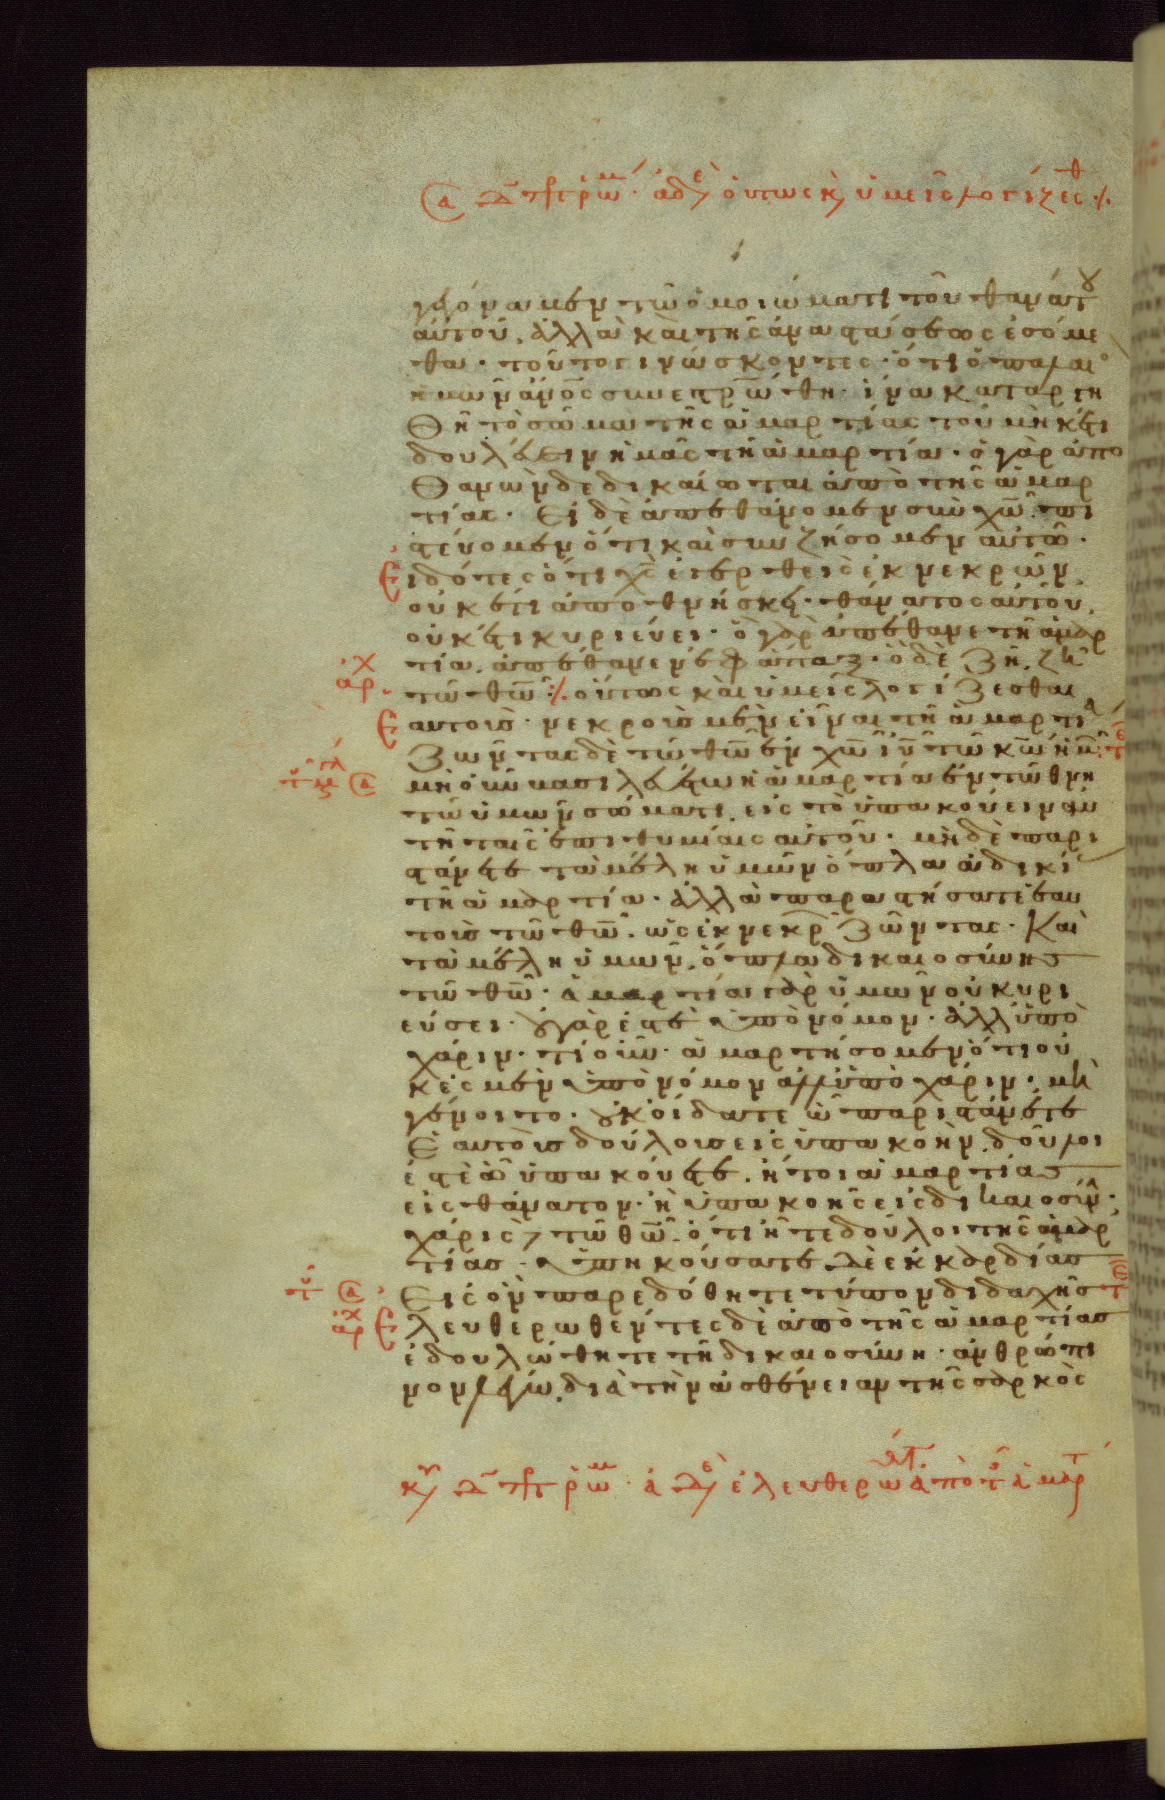 (α) οὕτως κ(αὶ) ὑμεῖς λογίζες
γόναμεν τῶ ὁμοιώματι τοῦ θανάτου
αὐτοῦ. ἀλλὰ καὶ τῆς ἀναστάσεως ἐσόμε
θα· τοῦτο γινώσκοντες· ὅτι ὁ παλαιὸ
ἡμῶν ἄν̅ο̅ς συνεστρ̅ώθη· ἵνα καταργη
θῆ τὸ σῶμα τῆς ἁμαρτίας τοῦ μηκέτι
δουλεύειν ἡμᾶς τῆ ἁμαρτία· ὁ γὰρ ἀπο
θανὼν δεδικαίωται ἀπὸ τῆς ἁμαρ
τίας· Εἰ δὲ ἀπεθάνομεν σὺν χ̅ῶ πι
στεύομεν ὅτι καὶ συνζήσομεν αὐτῶ·
Εἰδότες ὅτι χ̅ς ἐγερθεὶς ἐκ νεκρῶν
οὐκέτι ἀποθνήσκει· θάνατος αὐτοῦ
οὐκέτι κυριεύει· ὃ γὰρ ἀπέθανε τῆ ἁμαρ
τία. ἀπέθανεν ἐφάπαξ· ὃ δὲ ζῆ, ζῆ
ἀρχ τῶ θ̅ῶ· οὕτως καὶ ὑμεῖς λογίζεσθαι
Ἑαυτοὺς νεκροὺς μὲν εἶναι τῆ ἁμαρτία
ζῶντας δὲ τῶ θ̅ῶ ἐν χ̅ῶ ἰ̅ῦ τῶ κ̅ῶ ἡμ
(α) μὴ οὖν βασιλευέτω ἡ ἁμαρτία ἐν τῶ θνη
τῶ ὑμῶν σώματι. εἰς τὸ ὑπακούειν αὐ
τῆ ταῖς ἐπιθυμίαις αὐτοῦ· μηδὲ παρι
στάνετε τὰ μέλη ὑμῶν ὅπλα ἀδικί
τῆ ἁμαρτία· ἀλλὰ παραστήσατε ἑαυ
τοὺς τῶ θ̅ῶ. ὡς ἐκ νεκρ ζῶντας· Καὶ
τὰ μέλη ὑμῶν, ὅπλα δικαιοσύνης
τῶ θ̅ῶ· ἁμαρτία γὰρ ὑμῶν οὐ κυρι
εύσει· οὐ γάρ ἐστε ὑπὸ νόμον· ἀλλ ὑπὸ
χάριν· τί οὖν· ἁμαρτήσομεν ὅτι οὐ
κ ἐσμὲν ὑπὸ νόμον ἀλλ ὑπὸ χάριν· μὴ
γένοιτο· οὐκ οἴδατε ὧ παριστάνετε
Ἑαυτοὺς δούλους εἰς ὑπακοὴν. δοῦλοι
ἐστὲ ὧ ὑπακούετε. ἤτοι ἁμαρτίας
εἰς θάνατον· ἢ ὑπακοῆς εἰς δικαιοσύν·
χάρις τῶ θ̅ῶ. ὅτι ἦτε δοῦλοι τῆς ἁμαρ
τίας· ὑπηκούσατε δὲ ἐκ καρδίας
(α) Εἰς ὃν παρεδόθητε τύπον διδαχῆς
ἀρχ Ἐλευθερωθέντες δὲ ἀπὸ τῆς ἁμαρτίας
ἐδουλώθητε τῆ δικαιοσύνη· ἀνθρώπι
νον λέγω. διὰ τὴν ἀσθένειαν τῆς σαρκὸς
ἐλευθερω ἀπὸ τ ἁμαρτ